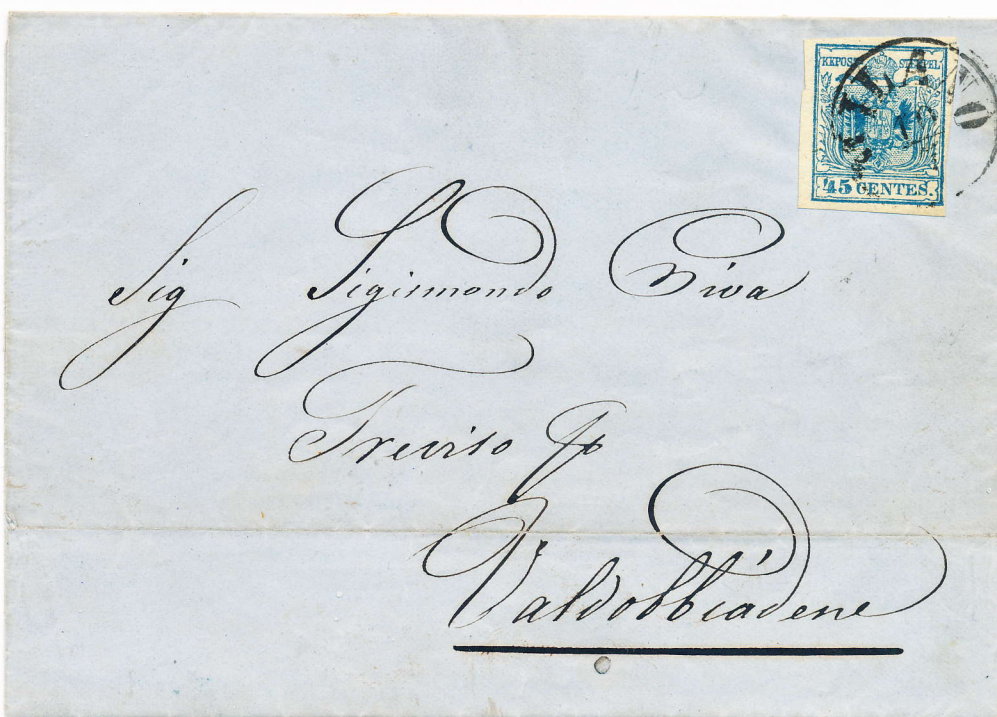 KKPOST STEMPEL
45 CENTES.
MILANO
Sig Sigismondo Piva
Treviso p
Valdobbiadene